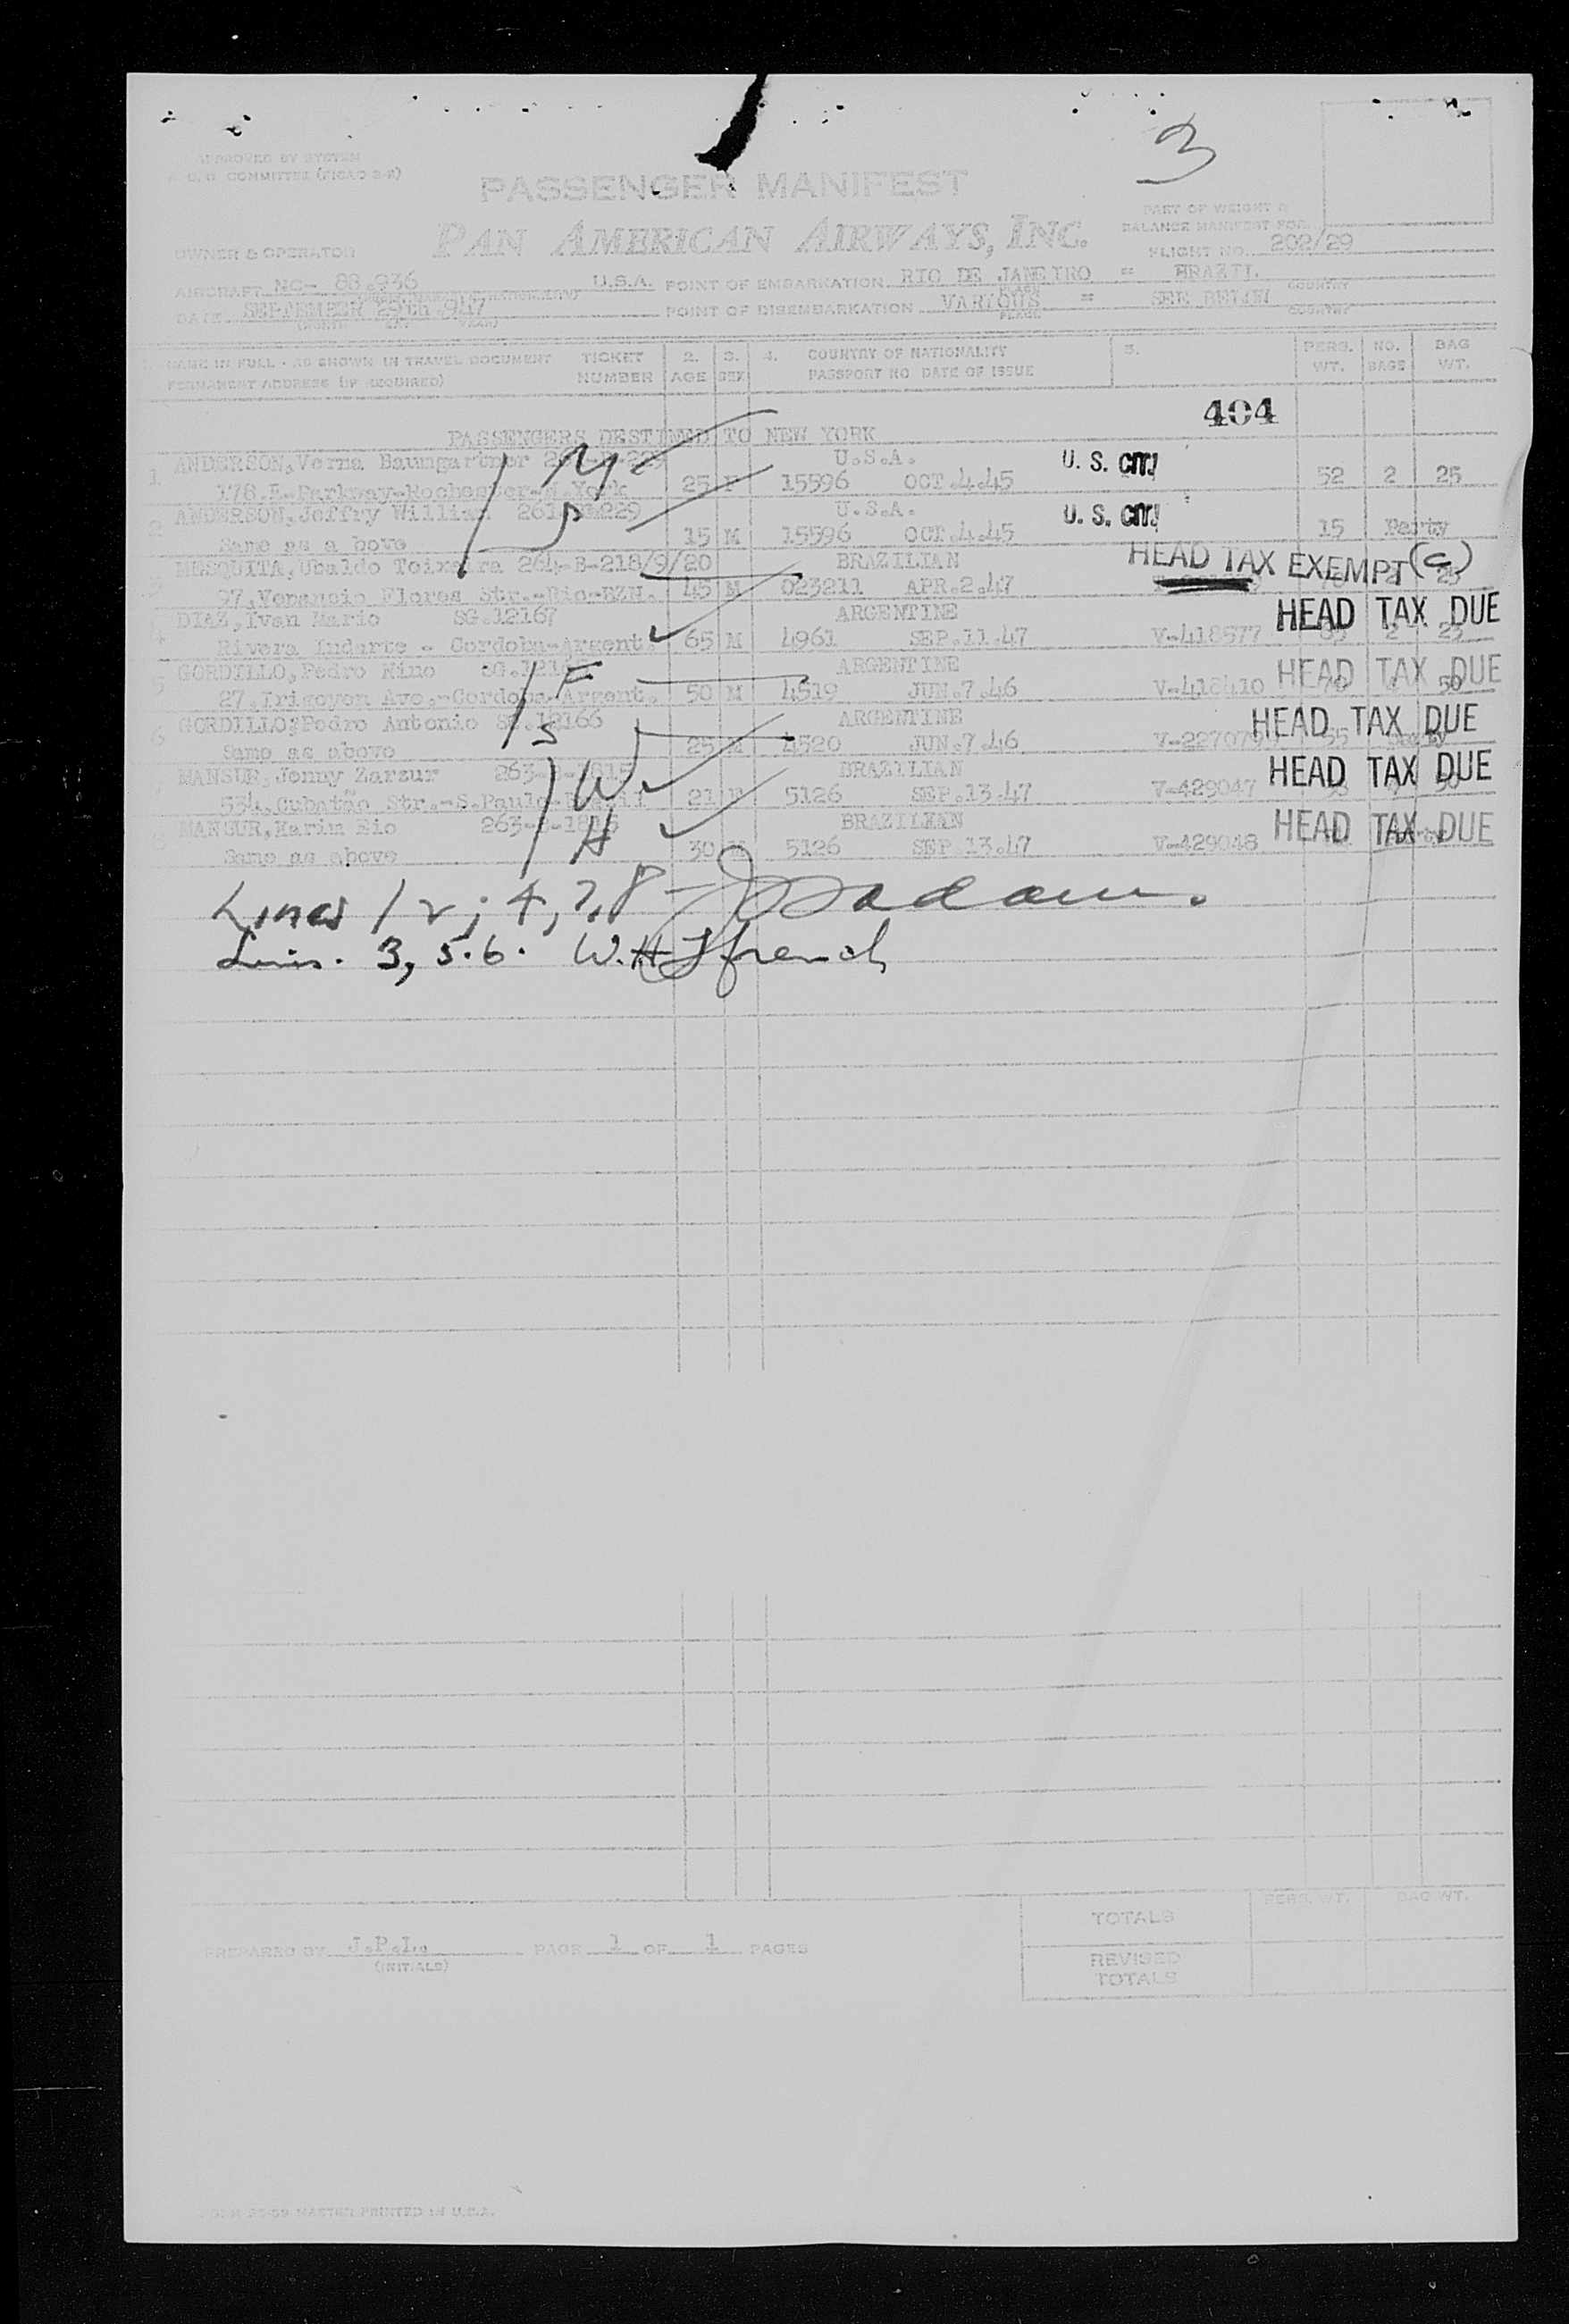 3
APPROVED BY SYSTEM
COMMITTEE
PASSENGER MANIFEST
PART OF WEIGHT &
BALANCE MANIFEST FOR
PAN AMERICAN AIRWAYS, INC.
OWNER & OPERATOR
FLIGHT NO. 202/29
AIRCRAFT NC- 88.936 U.S.A. POINT OF EMBARKATION RIO DE JANEIRO = BRAZIL
PLACE COUNTRY
DATE SEPTEMBER 29th 947 POINT OF DISEMBARKATION VARIOUS = SEE BELOW
PLACE COUNTRY
NAME IN FULL - AS SHOWN IN TRAVEL DOCUMENT TICKET 2. 3. 4. COUNTRY OF NATIONALITY 5. PERS. NO. BAG
PERMANENT ADDRESS (IF REQUIRED) NUMBER AGE SEX PASSPORT NO DATE OF ISSUE WT. BAGS WT.
404
PASSENGERS DESTINED TO NEW YORK
1 ANDERSON,Verna Baumgartner U.S.A. U. S. CIT.
178.E-Parkway-Rochester-N.York 25 F 15596 OCT.4.45 52 2 25
2 ANDERSON,Jeffry William U.S.A. U. S. CIT.
Same as a bove 15 M 15596 OCT.4.45 15 Party
MESQUITA,Ubaldo Teixeira 264-B-218/9/20 BRAZILIAN HEAD TAX EXEMPT (C)
97,Venancio Flores Str.-Rio-BZN. 45 M 023211 APR.2.47
4 DIAZ,Ivan Mario SG.12167 ARGENTINE HEAD TAX DUE
Rivera Indarte - Cordoba-Argent. 65 M 4961 SEP.11.47 V-418577 2 25
5 GORDILLO,Pedro Nino ARGENTINE HEAD TAX DUE
27.Irigoyen Ave.-Cordoba-Argent. 50 M 4519 JUN.7.46 V-418410 50
6 GORDILLO;Pedro Antonio SG.12166 ARGENTINE HEAD TAX DUE
Same as above 25 M 4520 JUN.7.46
MANSUR,Jenny Zarzur BRAZILIAN HEAD TAX DUE
534,Cubatão Str.-S.Paulo-Brazil 21 F 5126 SEP.13.47 V-429047
8 MANSUR,Karim Eio BRAZILEAN HEAD TAX DUE
Same as above 30 M 5126 SEP.13.47 V-429048
Lines 1 2; 4, 7, 8 -
Lines. 3, 5.6. W.H. Ffrench
PERS. WT. BAG WT.
TOTALS
PREPARED BY J.P.L. PAGE 1 OF 1 PAGES
(INITIALS)
REVISED
TOTALS
MASTER PRINTED IN U.S.A.